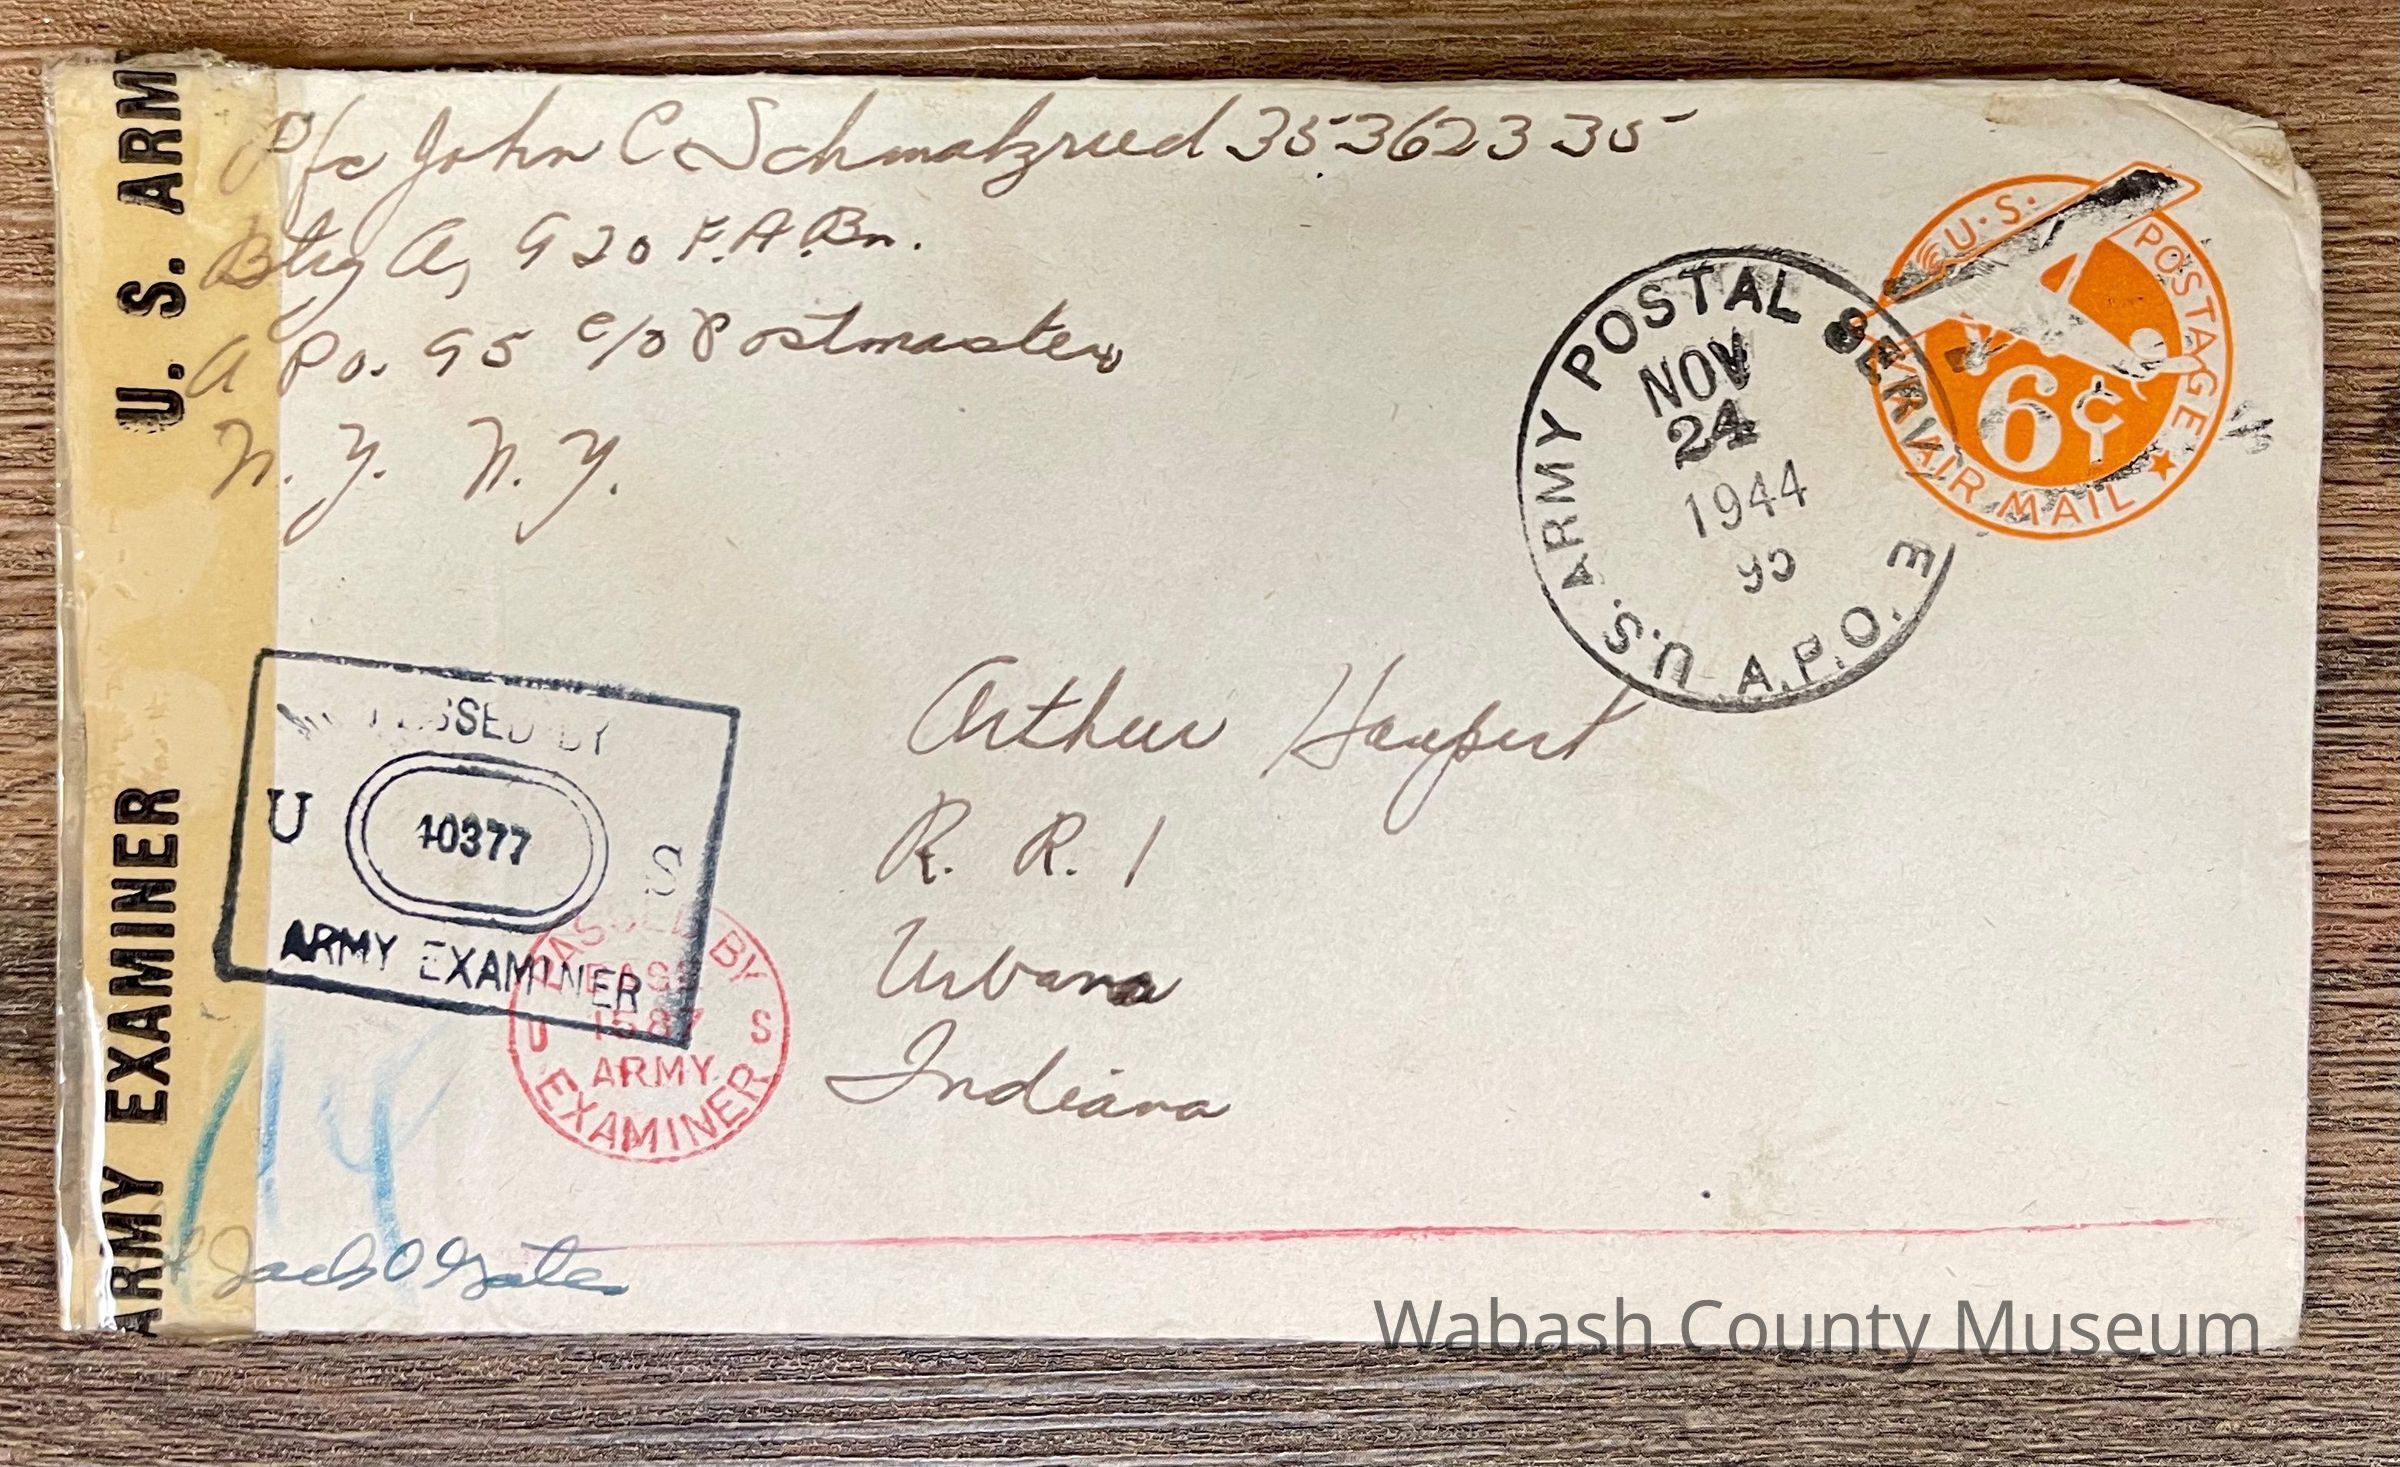 Pfc John C Schmalzried 35362335
Btry A, 920 F.A.Bn.
A Po. 95 c/o Postmaster
N. Y. N. Y.
U. S. ARMY
ARMY EXAMINER
U. S. ARMY POSTAL SERVICE
A.P.O.
NOV
24
1944
95
U.S. POSTAGE
6¢
AIR MAIL
Arthur Haupert
R. R. 1
Urbana
Indiana
PASSED BY
U 10377 S
ARMY EXAMINER
PASSED BY
BASE
U 1587 S
ARMY
EXAMINER
14
Jack O Gates
Wabash County Museum